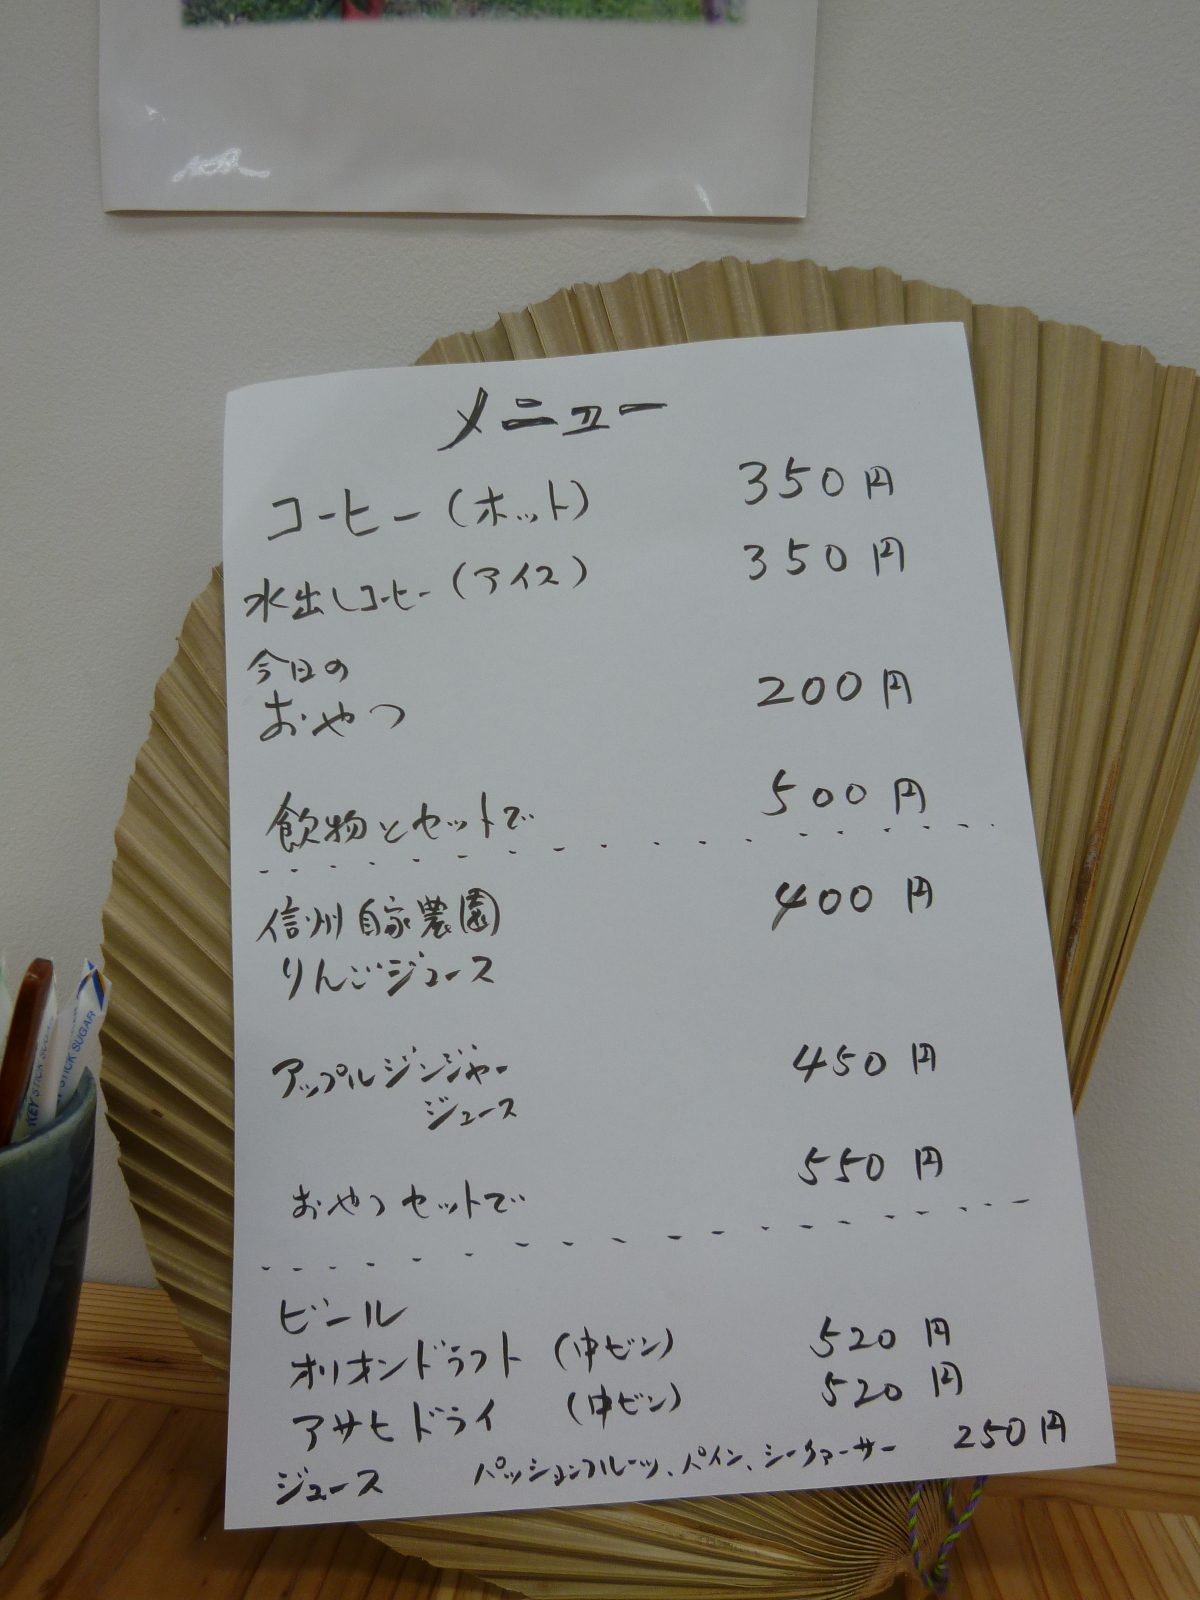 メニュー
コーヒー(ホット) 350円
水出しコーヒー(アイス) 350円
今日の
おやつ 200円
飲物とセットで 500円
信州自家農園 400円
りんごジュース
アップルジンジャー 450円
ジュース
おやつセットで 550円
ビール
オリオンドラフト (中ビン) 520円
アサヒドライ (中ビン) 520円
ジュース パッションフルーツ、パイン、シークァーサー 250円
STICK SUGAR